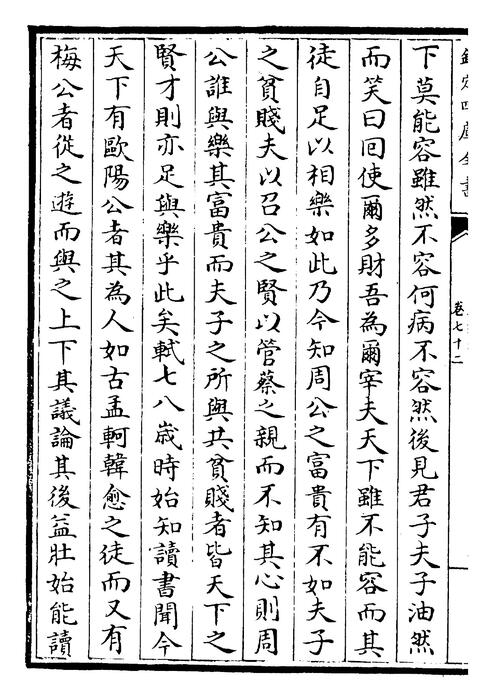 欽定四庫全書
卷七十二
下莫能容雖然不容何病不容然後見君子夫子油然
而笑曰回使爾多財吾為爾宰夫天下雖不能容而其
徒自足以相樂如此乃今知周公之富貴有不如夫子
之貧賤夫以召公之賢以管蔡之親而不知其心則周
公誰與樂其富貴而夫子之所與共貧賤者皆天下之
賢才則亦足與樂乎此矣軾七八歲時始知讀書聞今
天下有歐陽公者其為人如古孟軻韓愈之徒而又有
梅公者從之遊而與之上下其議論其後益壯始能讀